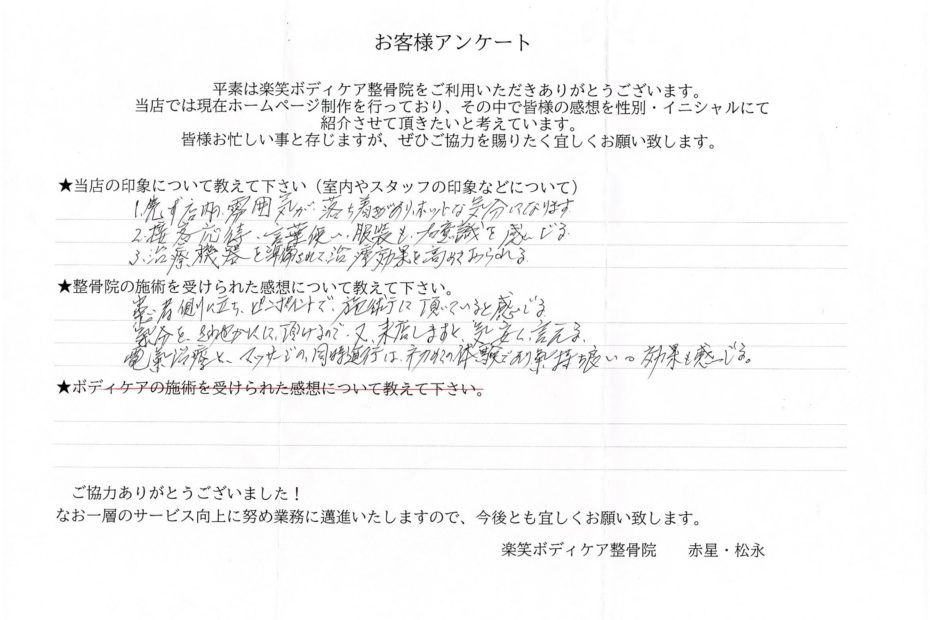 お客様アンケート
平素は楽笑ボディケア整骨院をご利用いただきありがとうございます。
当店では現在ホームページ制作を行っており、その中で皆様の感想を性別・イニシャルにて
紹介させて頂きたいと考えています。
皆様お忙しい事と存じますが、ぜひご協力を賜りたく宜しくお願い致します。
★当店の印象について教えて下さい（室内やスタッフの印象などについて）
1.先ず店内、雰囲気が、落ち着きがありホットな気分になります
2.接客応待、言葉使い、服装も、意識を感じる
3.治療機器を準備されて治療効果を高めておられる。
★整骨院の施術を受けられた感想について教えて下さい。
患者側に立ち、ピンポイントで、施術行に頂いていると感じる
気分を、に頂けるので、又、来店しますと、気安く言える、
電気治療と、マッサージの同時進行は、初めての体験であり気持ち良い。効果も感じる。
★ボディケアの施術を受けられた感想について教えて下さい。
ご協力ありがとうございました！
なお一層のサービス向上に努め業務に邁進いたしますので、今後とも宜しくお願い致します。
楽笑ボディケア整骨院　赤星・松永